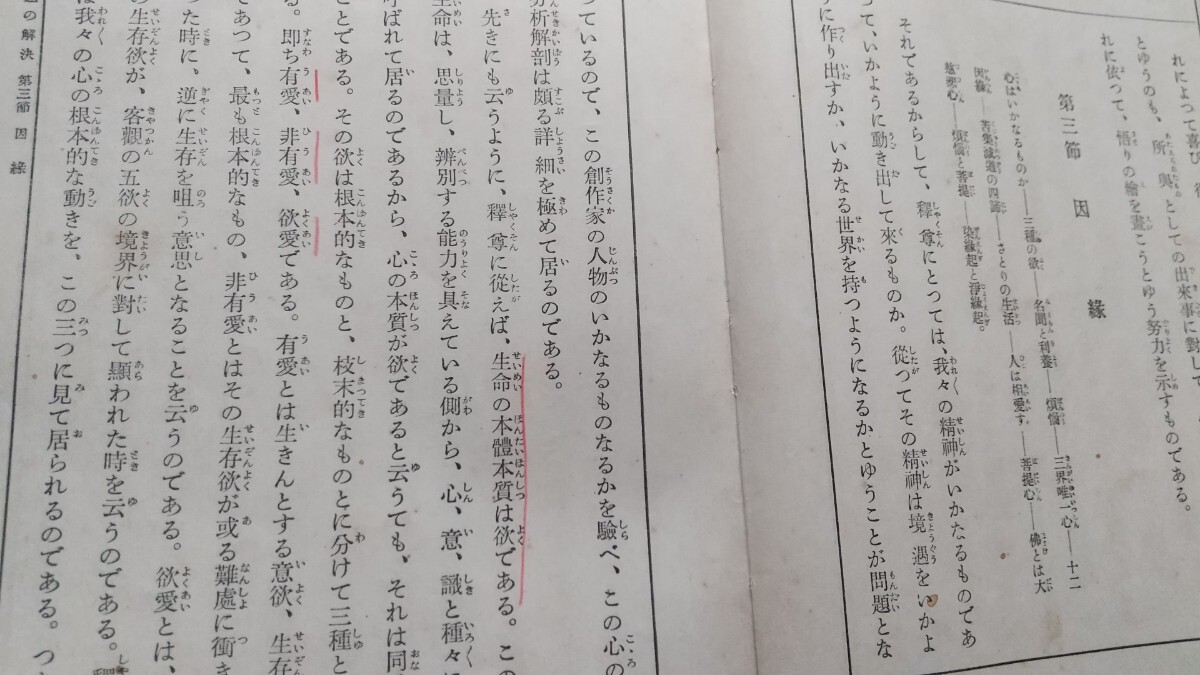 れによって喜び
とゆうのも、所與としての出來事に對して
れに依つて、悟りの繪を畫こうとゆう努力を示すものである。
第三節 因緣
心はいかなるものか――三種の欲――名聞と利養――煩惱――三界唯一心――十二
因緣――苦集滅道の四諦――さとりの生活――人は相愛す。菩提心――佛とは大
慈悲心――煩惱と菩提――染緣起と淨緣起。
それであるからして、釋尊にとつては、我々の精神がいかなるものであ
つて、いかように動き出して來るものか。從つてその精神は境遇をいかよ
うに作り出すか、いかなる世界を持つようになるかとゆうことが問題とな
つているので、この創作家の人物のいかなるものなるかを驗べ、この心の
分析解剖は頗る詳細を極めて居るのである。
先きにも云うように、釋尊に從えば、生命の本體本質は欲である。この
生命は、思量し、辨別する能力を具えている側から、心、意、識と種々に
呼ばれて居るのであるから、心の本質が欲であると云うても、それは同
ことである。その欲は根本的なものと、枝末的なものとに分けて三種と
る。卽ち有愛、非有愛、欲愛である。有愛とは生きんとする意欲、生存
であつて、最も根本的なもの、非有愛とはその生存欲が或る難處に衝き
った時に、逆に生存を咀う意思となることを云うのである。欲愛とは、
の生存欲が、客觀の五欲の境界に對して顯われた時を云うのである。釋
は我々の心の根本的な動きを、この三つに見て居られるのである。つ
の解決 第三節 因緣